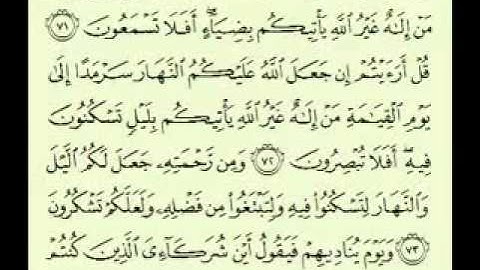 مَنْ إِلَٰهٌ غَيْرُ ٱللَّهِ يَأْتِيكُم بِضِيَآءٍ ۖ أَفَلَا تَسْمَعُونَ ٧١
قُلْ أَرَءَيْتُمْ إِن جَعَلَ ٱللَّهُ عَلَيْكُمُ ٱلنَّهَارَ سَرْمَدًا إِلَىٰ
يَوْمِ ٱلْقِيَٰمَةِ مَنْ إِلَٰهٌ غَيْرُ ٱللَّهِ يَأْتِيكُم بِلَيْلٍ تَسْكُنُونَ
فِيهِ ۖ أَفَلَا تُبْصِرُونَ ٧٢ وَمِن رَّحْمَتِهِۦ جَعَلَ لَكُمُ ٱلَّيْلَ
وَٱلنَّهَارَ لِتَسْكُنُوا۟ فِيهِ وَلِتَبْتَغُوا۟ مِن فَضْلِهِۦ وَلَعَلَّكُمْ تَشْكُرُونَ
٧٣ وَيَوْمَ يُنَادِيهِمْ فَيَقُولُ أَيْنَ شُرَكَآءِىَ ٱلَّذِينَ كُنتُمْ